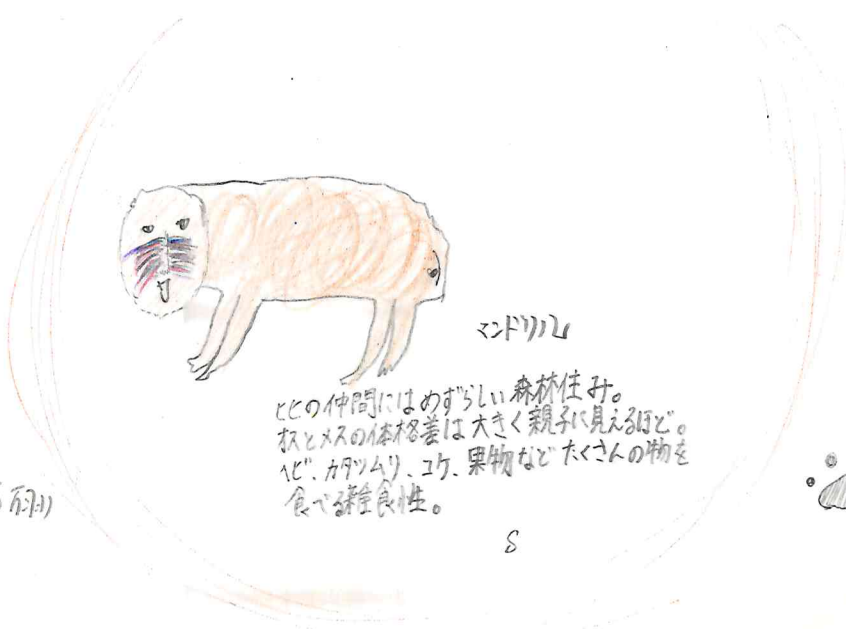 マンドリル
ヒヒの仲間にはめずらしい森林住み。
オスとメスの体格差は大きく親子に見えるほど。
ヘビ、カタツムリ、コケ、果物などたくさんの物を
食べる雑食性。
S